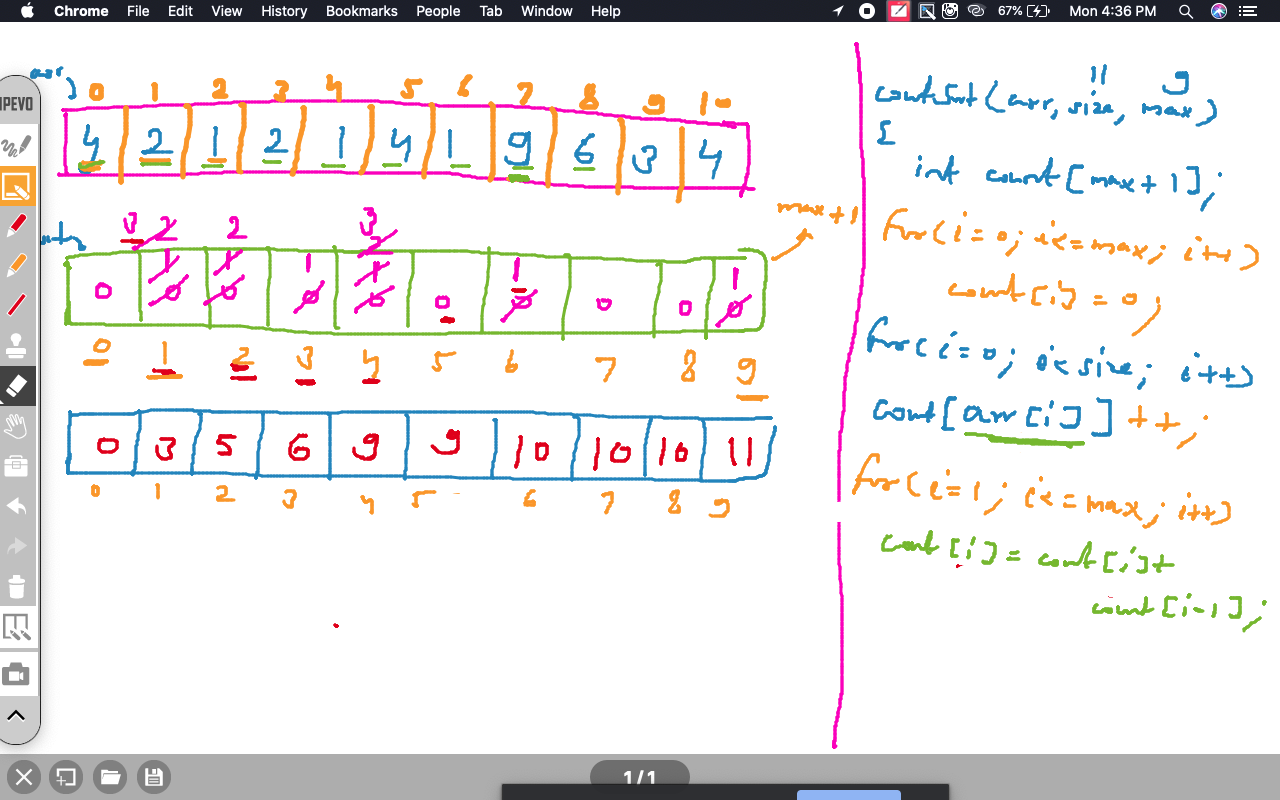 Chrome File Edit View History Bookmarks People Tab Window Help 67% Mon 4:36 PM
IPEVO
arr
0 1 2 3 4 5 6 7 8 9 10
4 2 1 2 1 4 1 9 6 3 4
3 2 2 3 2
max+1
1 1 1 1 1 1
0 0 0 0 0 0 0 0 0 0
0 1 2 3 4 5 6 7 8 9
0 3 5 6 9 9 10 10 10 11
0 1 2 3 4 5 6 7 8 9
11 9
countSort(arr, size, max)
{
int count[max+1];
for(i=0; i<=max; i++)
count[i] = 0;
for(i=0; i<size; i++)
cont[arr[i]]++;
for(i=1; i<=max; i++)
cont[i] = cont[i]+
count[i-1];
1/1